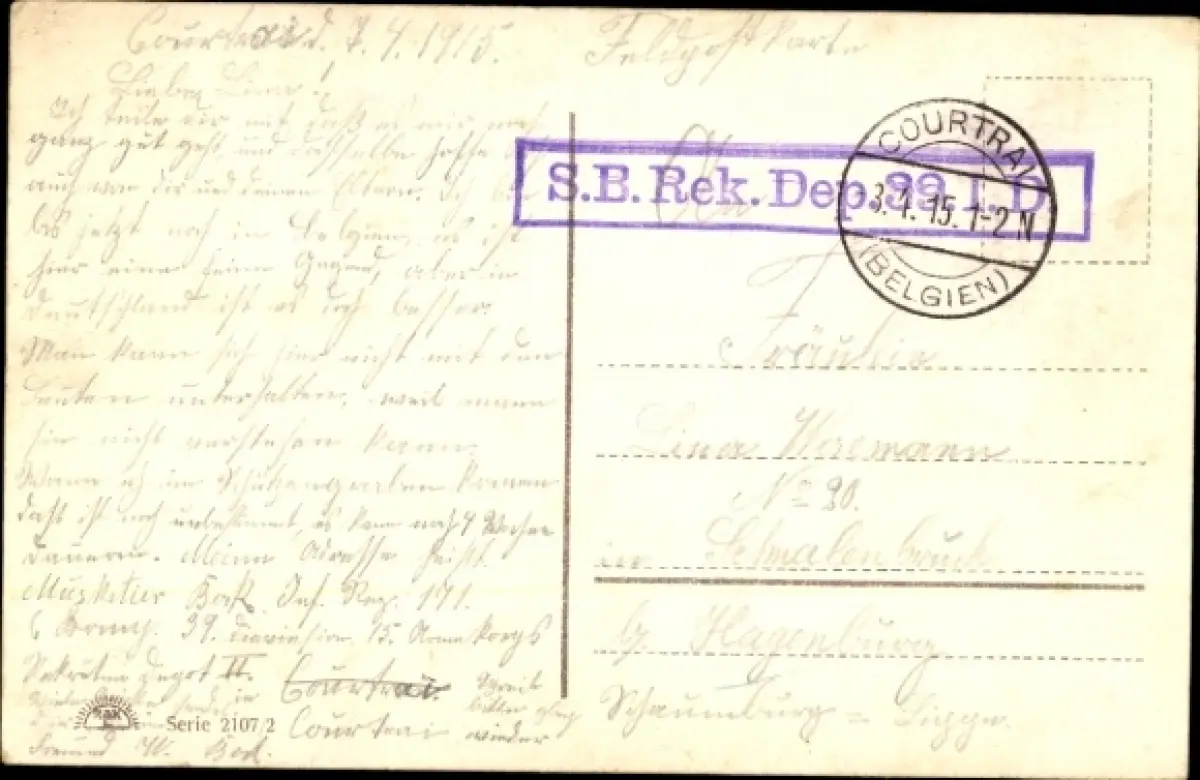 Courtrai d. 7.4.1915.
Feldpostkarte
Liebe Lina!
Ich teile dir mit daß es mir noch
ganz gut geht, und dasselbe hoffe ich
auch von dir und deinen Eltern. Ich bin
bis jetzt noch in Belgien, es ist
hier eine feine Gegend, aber in
Deutschland ist es doch besser.
Man kann sich hier nicht mit den
Leuten unterhalten, weil mann
sie nicht verstehen kann.
Wann ich im Schützengraben komme
daß ist noch unbestimmt, es kann noch 4 Wochen
dauern. Meine Adresse heist.
Musketier Inf. Reg. 171.
6 Komp. 39. Division 15. Armekorps
Rekruten Depot II. Courtrai.
Courtrai
Schreib
bitte
wieder
Freund W.
S.B. Rek. Dep. 39. I.D.
COURTRAI
3.4.15.1-2N
(BELGIEN)
An
Fräulein
Lina
No 20.
in Schmalenbruch
b/ Hagenburg
Schaumburg = Lippe.
Serie 2107/2